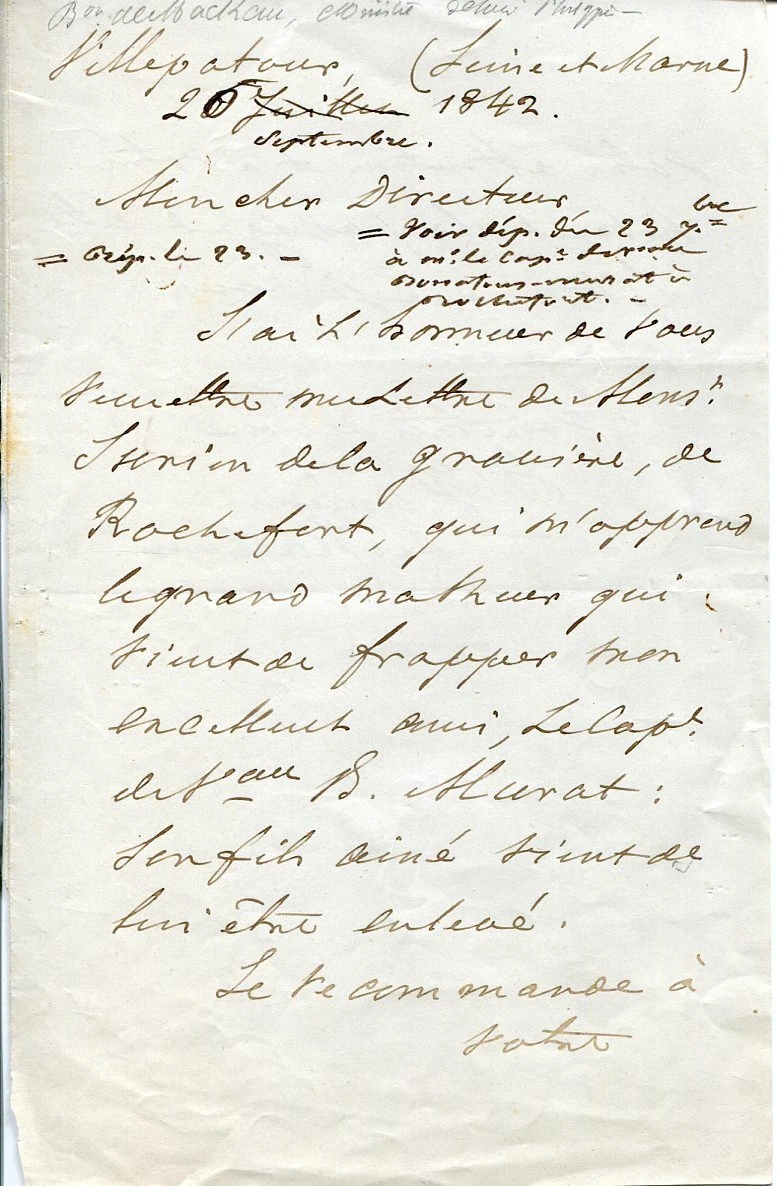 Bon de Mackau, Ministre de Louis Philippe
Villepatour, (Seine et Marne)
20 Juillet 1842.
Septembre.
Mon cher Directeur
= Rép. le 23. —
= Voir dép. du 23 7bre
à mr. le Capne de vau
Bonafous-murat à
Rochefort. —
J'ai L'honneur de Vous
remettre une Lettre de Monsr.
Jurien de la graviere, de
Rochefort, qui m'apprend
le grand malheur qui
Vient de frapper mon
excellent ami, Le Capne.
de Vau B. Murat :
Son fils ainé vient de
lui être enlevé.
Je recommande à
votre